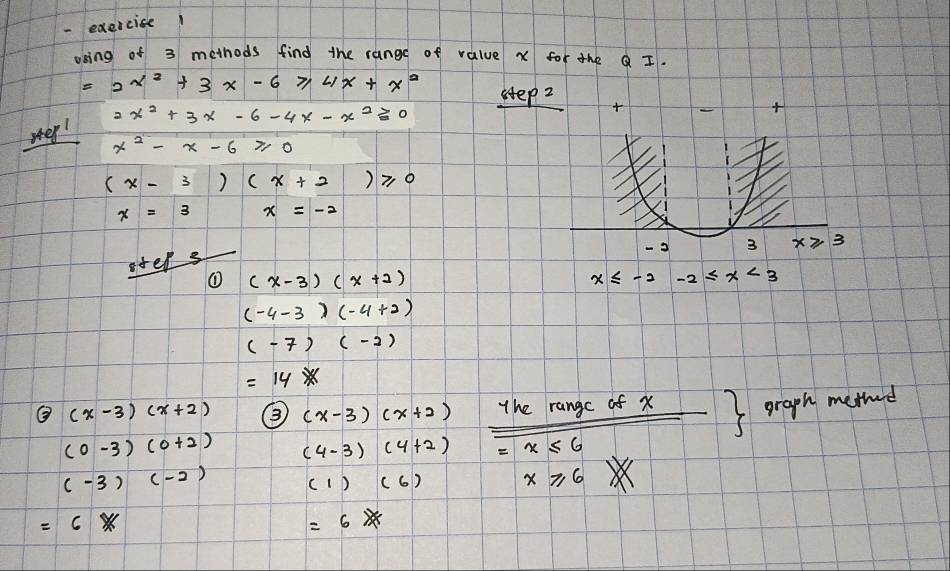 - exercise 1
using of 3 methods find the range of value x for the Q I.
= 2x² + 3x - 6 ≥ 4x + x²
step 1
2x² + 3x - 6 - 4x - x² ≥ 0
x² - x - 6 ≥ 0
(x - 3) (x + 2) ≥ 0
x = 3 x = -2
step 2
+ - +
-2 3 x ≥ 3
x ≤ -2 -2 ≤ x < 3
step 3
① (x-3) (x+2)
(-4-3) (-4+2)
(-7) (-2)
= 14
② (x-3) (x+2)
(0-3) (0+2)
(-3) (-2)
= 6
③ (x-3) (x+2)
(4-3) (4+2)
(1) (6)
= 6
The range of x
= x ≤ 6
x ≥ 6
} graph method